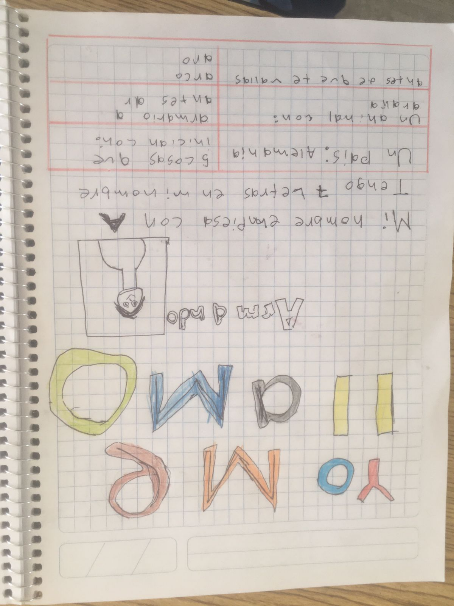 Yo Me
llaMO
Armando
Mi nombre empiesa con A
Tengo 7 letras en mi nombre
Un país: Alemania
5 cosas que
inician con:
Un animal con:
araña
armario a
antes
antes de que te vallas
arco
aro